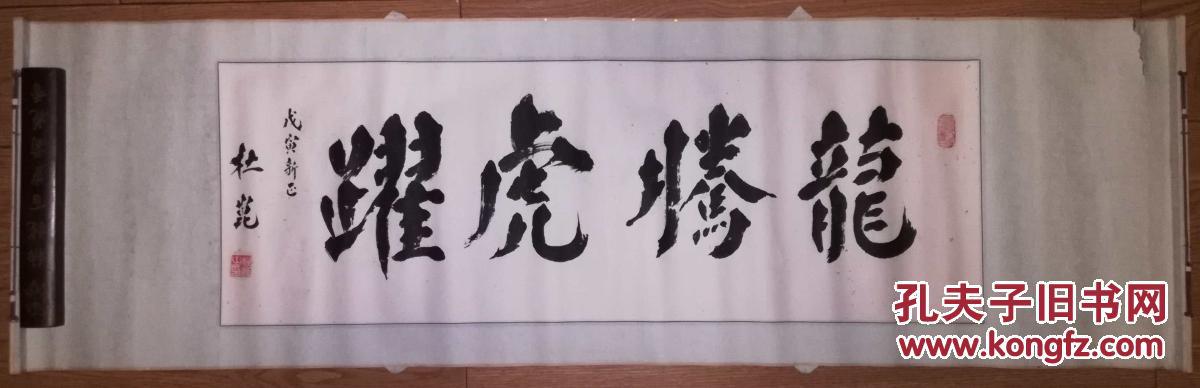 龍騰虎躍
戊寅新正
杜崑
孔夫子旧书网
www.kongfz.com